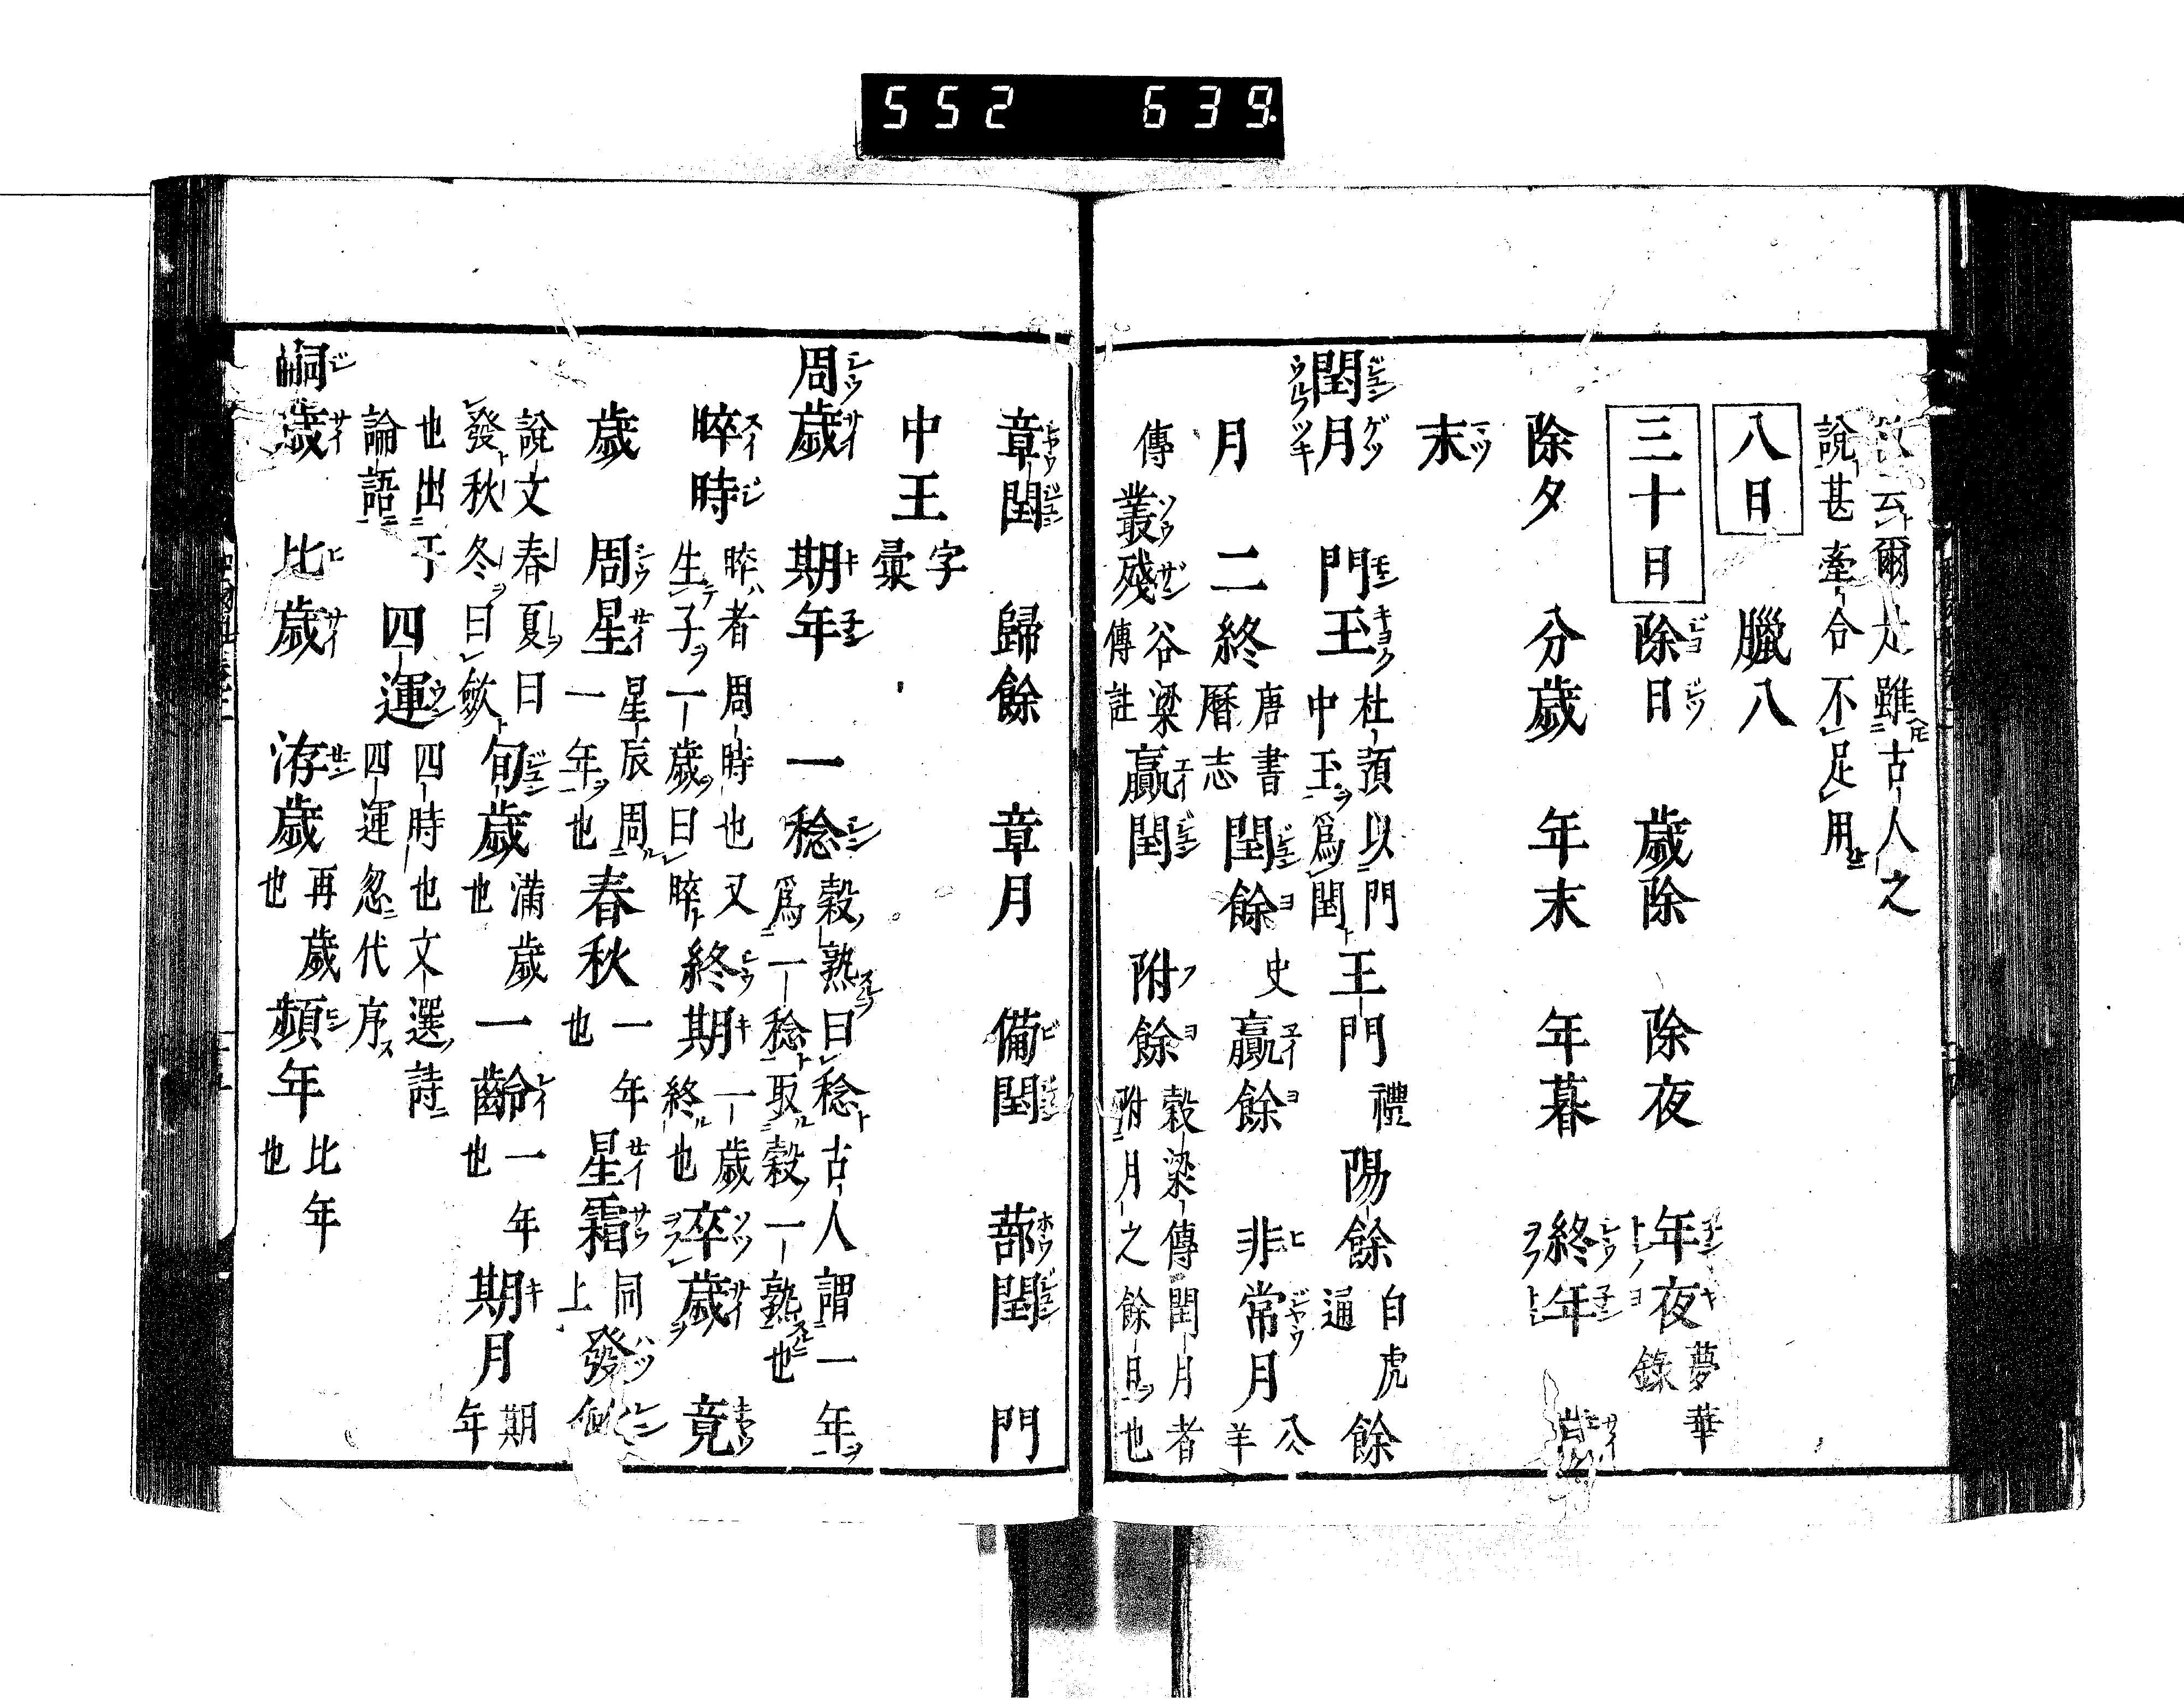 552 639.
云爾尤雖古人之
說甚牽合不足用
八日 臘八
三十日 除日 歲除 除夜 年夜 夢華
錄
除夕 分歲 年末 年暮 終年 歲
末
閏月 門王 杜預以門
中王爲閏 王門 禮 陽餘 白虎
通 餘
月 二終 唐書
曆志 閏餘 史 贏餘 非常月 公
羊
傳 叢殘 谷梁
傳註 贏閏 附餘 穀梁傳閏月者
附月之餘日也
章閏 歸餘 章月 備閏 蔀閏 門
中王 字
彙
周歲 期年 一稔 穀熟曰稔古人謂一年
爲一稔取穀一熟也
晬時 晬者周時也又
生子一歲曰晬 終期 一歲
終也 卒歲 竟
歲 周星 星辰周
一年也 春秋 一年
也 星霜 同
上 發斂
說文春夏曰
發秋冬曰斂 旬歲 滿歲
也 一齡 一年
也 期月 期
年
也出于
論語 四運 四時也文選詩
四運忽代序
嗣歲 比歲 洊歲 再歲
也 頻年 比年
也